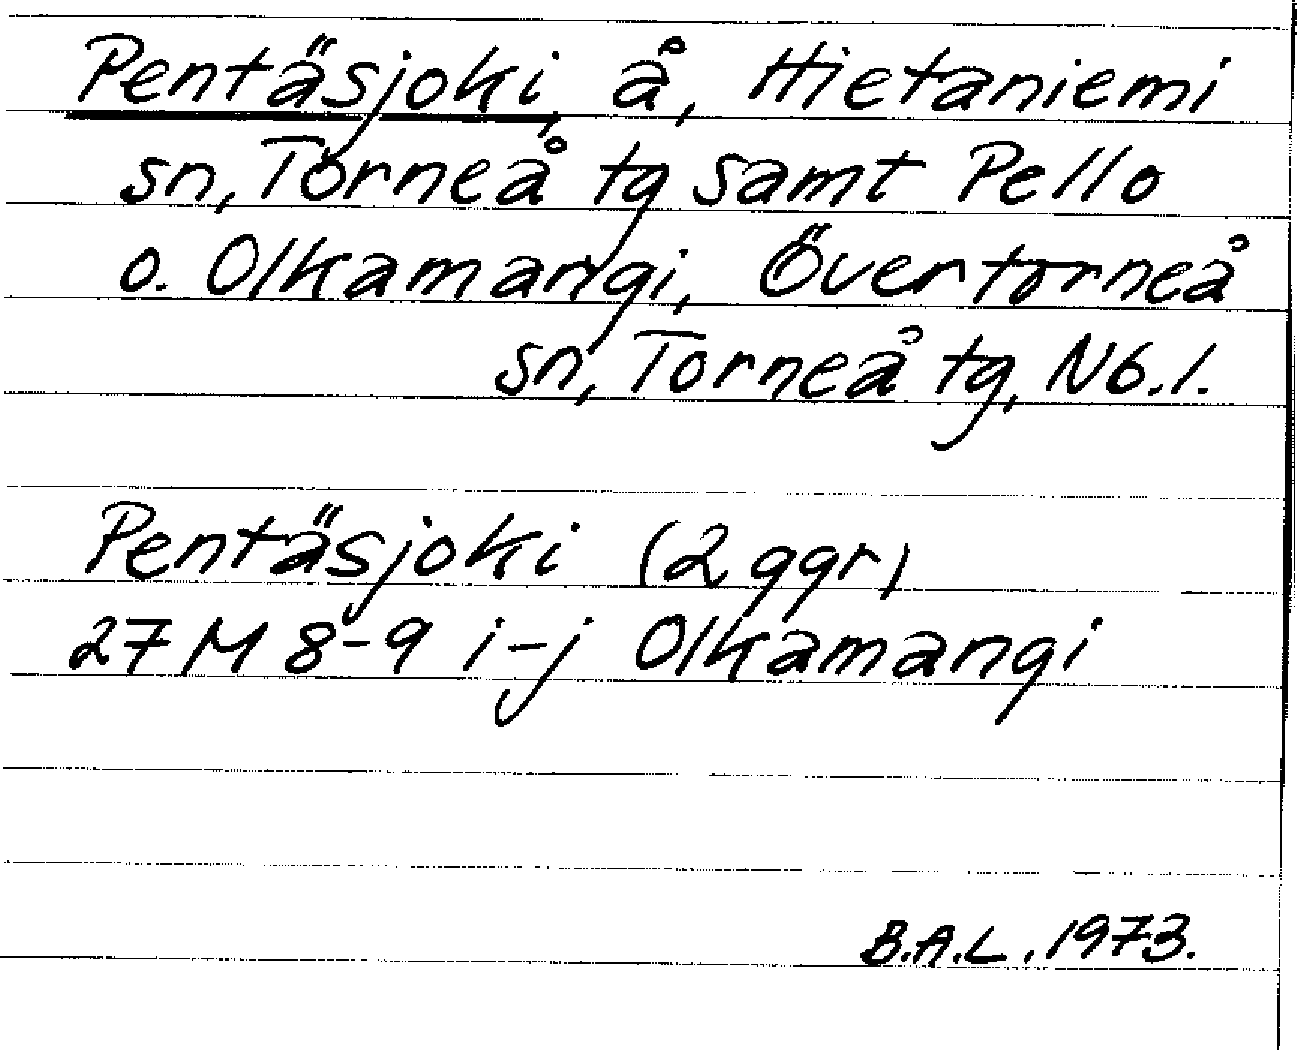 Pentäsjoki, å, Hietaniemi
sn, Torneå tg samt Pello
o. Olkamangi, Övertorneå
sn, Torneå tg, Nb.l.
Pentäsjoki (2 ggr)
27 M 8-9 i-j Olkamangi
B.A.L. 1973.